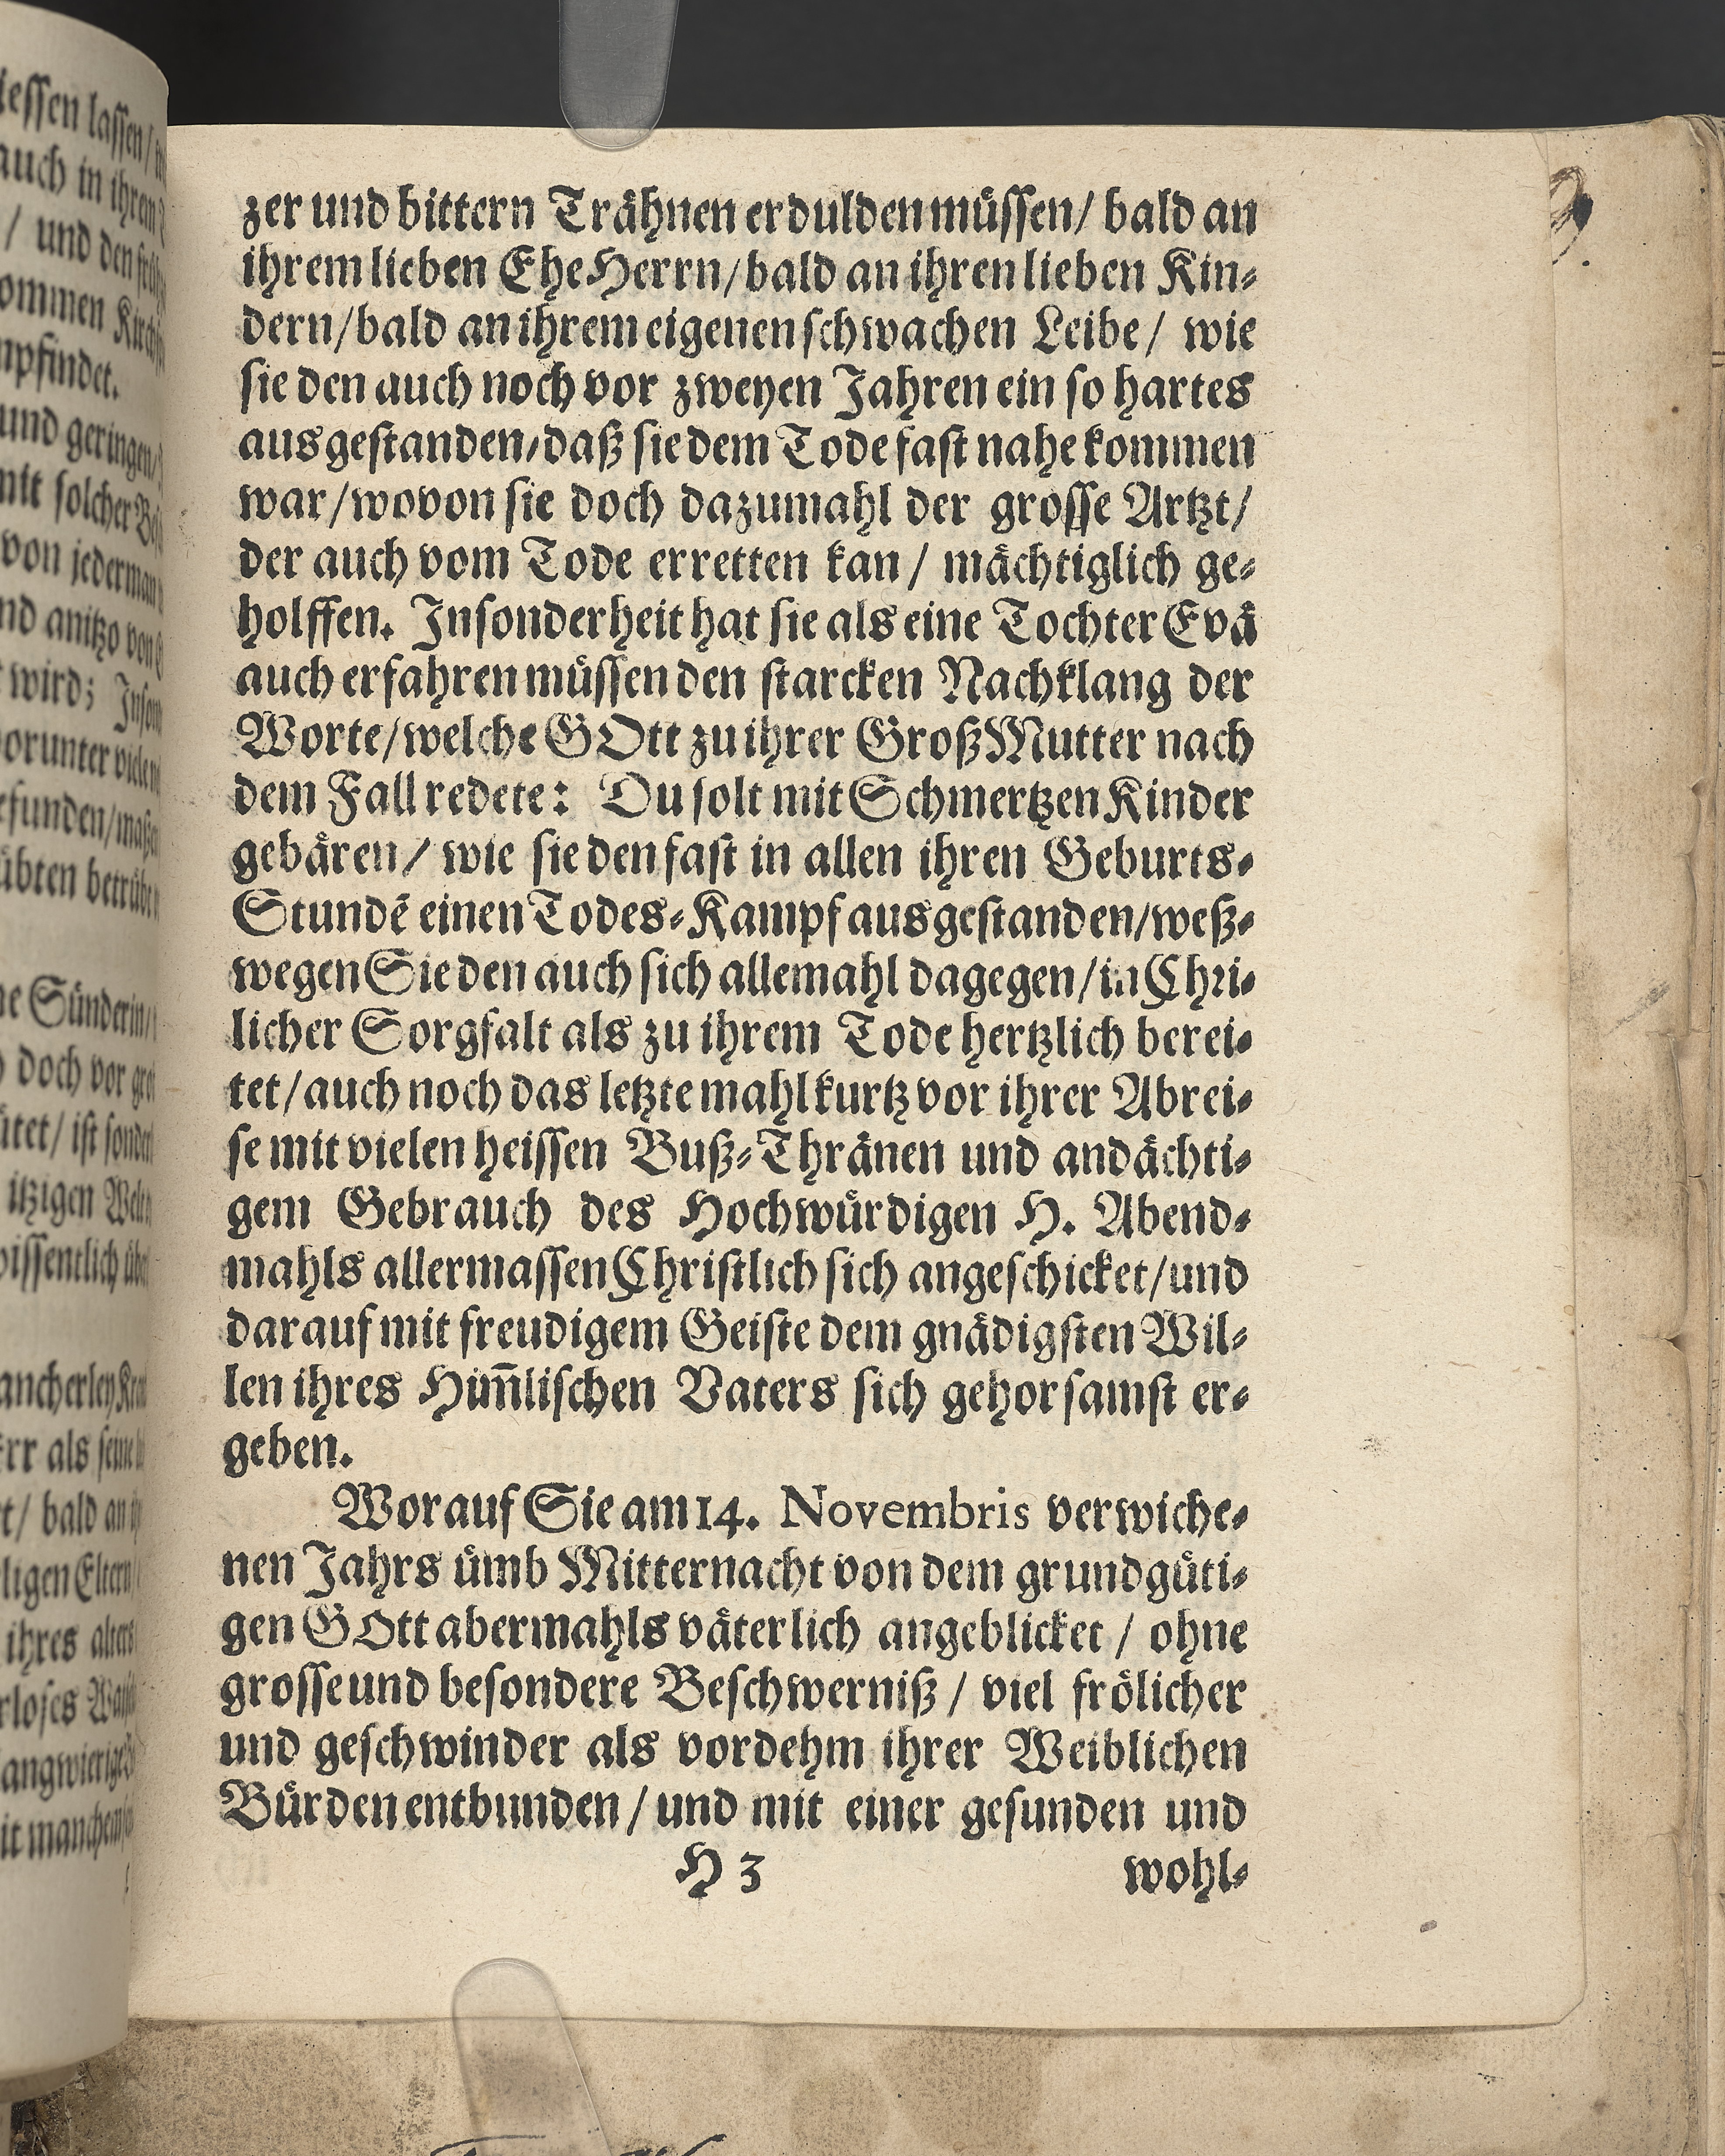 zer und bittern Trähnen erdulden müssen/ bald an
ihrem lieben EheHerrn/bald an ihren lieben Kin-
dern/bald an ihrem eigenen schwachen Leibe/ wie
sie den auch noch vor zweyen Jahren ein so hartes
ausgestanden/daß sie dem Tode fast nahe kommen
war/wovon sie doch dazumahl der grosse Artzt/
der auch vom Tode erretten kan/ mächtiglich ge-
holffen. Insonderheit hat sie als eine Tochter Evä
auch erfahren müssen den starcken Nachklang der
Worte/welche GOtt zu ihrer GroßMutter nach
dem Fall redete: Du solt mit Schmertzen Kinder
gebären/ wie sie den fast in allen ihren Geburts-
Stundē einen Todes-Kampf ausgestanden/weß-
wegen Sie den auch sich allemahl dagegen/in Chri-
licher Sorgfalt als zu ihrem Tode hertzlich berei-
tet/auch noch das letzte mahl kurtz vor ihrer Abrei-
se mit vielen heissen Buß-Thränen und andächti-
gem Gebrauch des Hochwürdigen H. Abend-
mahls allermassen Christlich sich angeschicket/und
darauf mit freudigem Geiste dem gnädigsten Wil-
len ihres Him̄lischen Vaters sich gehorsamst er-
geben.
Worauf Sie am 14. Novembris verwiche-
nen Jahrs ümb Mitternacht von dem grundgüti-
gen GOtt abermahls väterlich angeblicket / ohne
grosse und besondere Beschwerniß / viel frölicher
und geschwinder als vordehm ihrer Weiblichen
Bürden entbunden / und mit einer gesunden und
H 3 wohl-